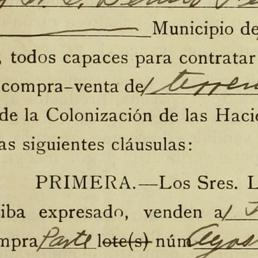 Municipio de
, todos capaces para contratar
compra-venta de 1 terreno
de la Colonización de las Hacie
as siguientes cláusulas:
PRIMERA.—Los Sres. L
iba expresado, venden a
mpra Parte lote(s) núm